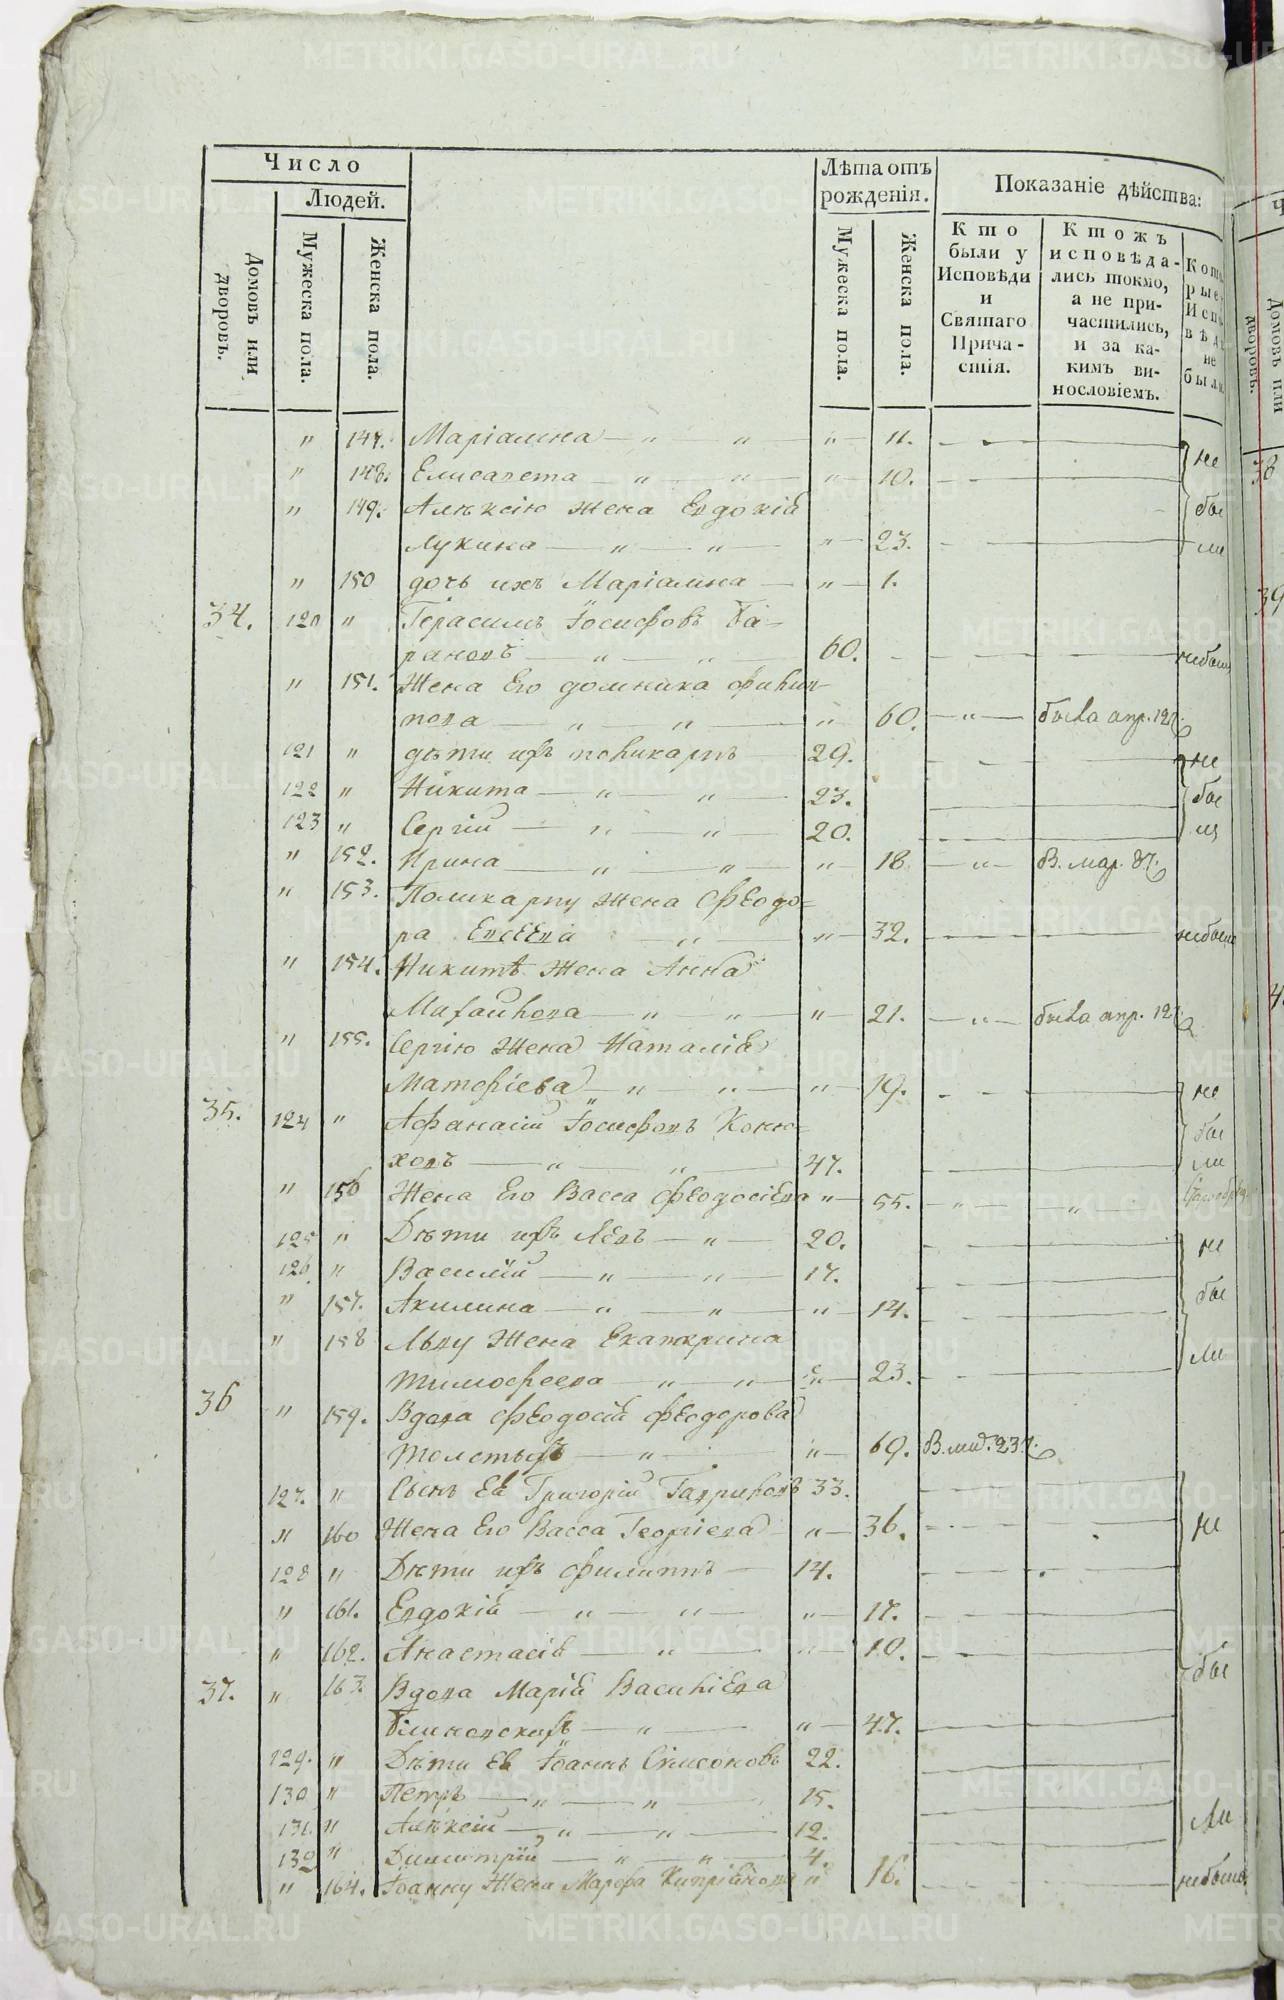 Число
Людей.
Домовъ или дворовъ.
Мужеска пола.
Женска пола.
Лѣта отъ рожденія.
Мужеска пола.
Женска пола.
Показаніе дѣйства:
Кто были у Исповѣди и Святаго Прича-стія.
Ктожъ исповѣда-лись токмо, а не при-частились, и за ка-кимъ ви-нословіемъ.
Кото-рые Испо-вѣди не были
" 147. Маріамна — " — " — " — 11. не
" 148. Елисавета — " — " — " — 10.
" 149. Алексію жена Евдокія бы
Лукина — " — " — " — 23. ли
" 150 дочь ихъ Маріамна — " — 1.
34. 120 " Герасимъ Іосифовъ Ба-
рановъ — " — " — 60. небылъ
" 151. Жена Его Домника Филип-
пова — " — " — " 60. — " — была апр. 12.
121 " дѣти ихъ Поликарпъ 29. не
122 " Никита — " — " — 23. бы
123 " Сергій — " — " — 20. ли
" 152. Ирина — " — " — " — 18 — " — В. мар. 8.
" 153. Поликарпу жена Феодо-
ра Евсеева — " — " — 32. небыла
" 154. Никитѣ жена Анна
Михайлова — " — " — " — 21. — " — была апр. 12
" 155. Сергію жена Наталія
Матфіева — " — " — " — 19. не
35. 124 " Афанасій Іосифовъ Коню- бы
ховъ — " — " — 47. ли
" 156 Жена Его Васса Феодосіева " — 55. — " — "
125 " Дѣти ихъ Левъ — " — 20. не
126 " Василій — " — " — 17.
" 157. Акилина — " — " — " — 14. бы
" 158 Льву жена Екатерина
Тимофеева — " — " — " — 23. ли
36 " 159. Вдова Феодосія Феодорова
Толстыхъ — " — " — 69. В. 23
127. " Сынъ Ея Григорій Гавриловъ 33.
" 160 Жена Его Васса Георгіева " — 36. не
128 " Дѣти ихъ Филиппъ — 14.
" 161. Евдокія — " — " — " — 17.
" 162. Анастасія — " — " — 10. бы
37. " 163. Вдова Марія Василіева
— " — " — 47.
129. " Дѣти Ея Іоаннъ Симеоновъ 22.
130 " Петръ — " — " — 15.
131. " Алексій — " — " — 12. ли
132 " Димитрій — " — " — 4.
" 164. Іоанну жена Марфа Кипріянова " 16. небыла